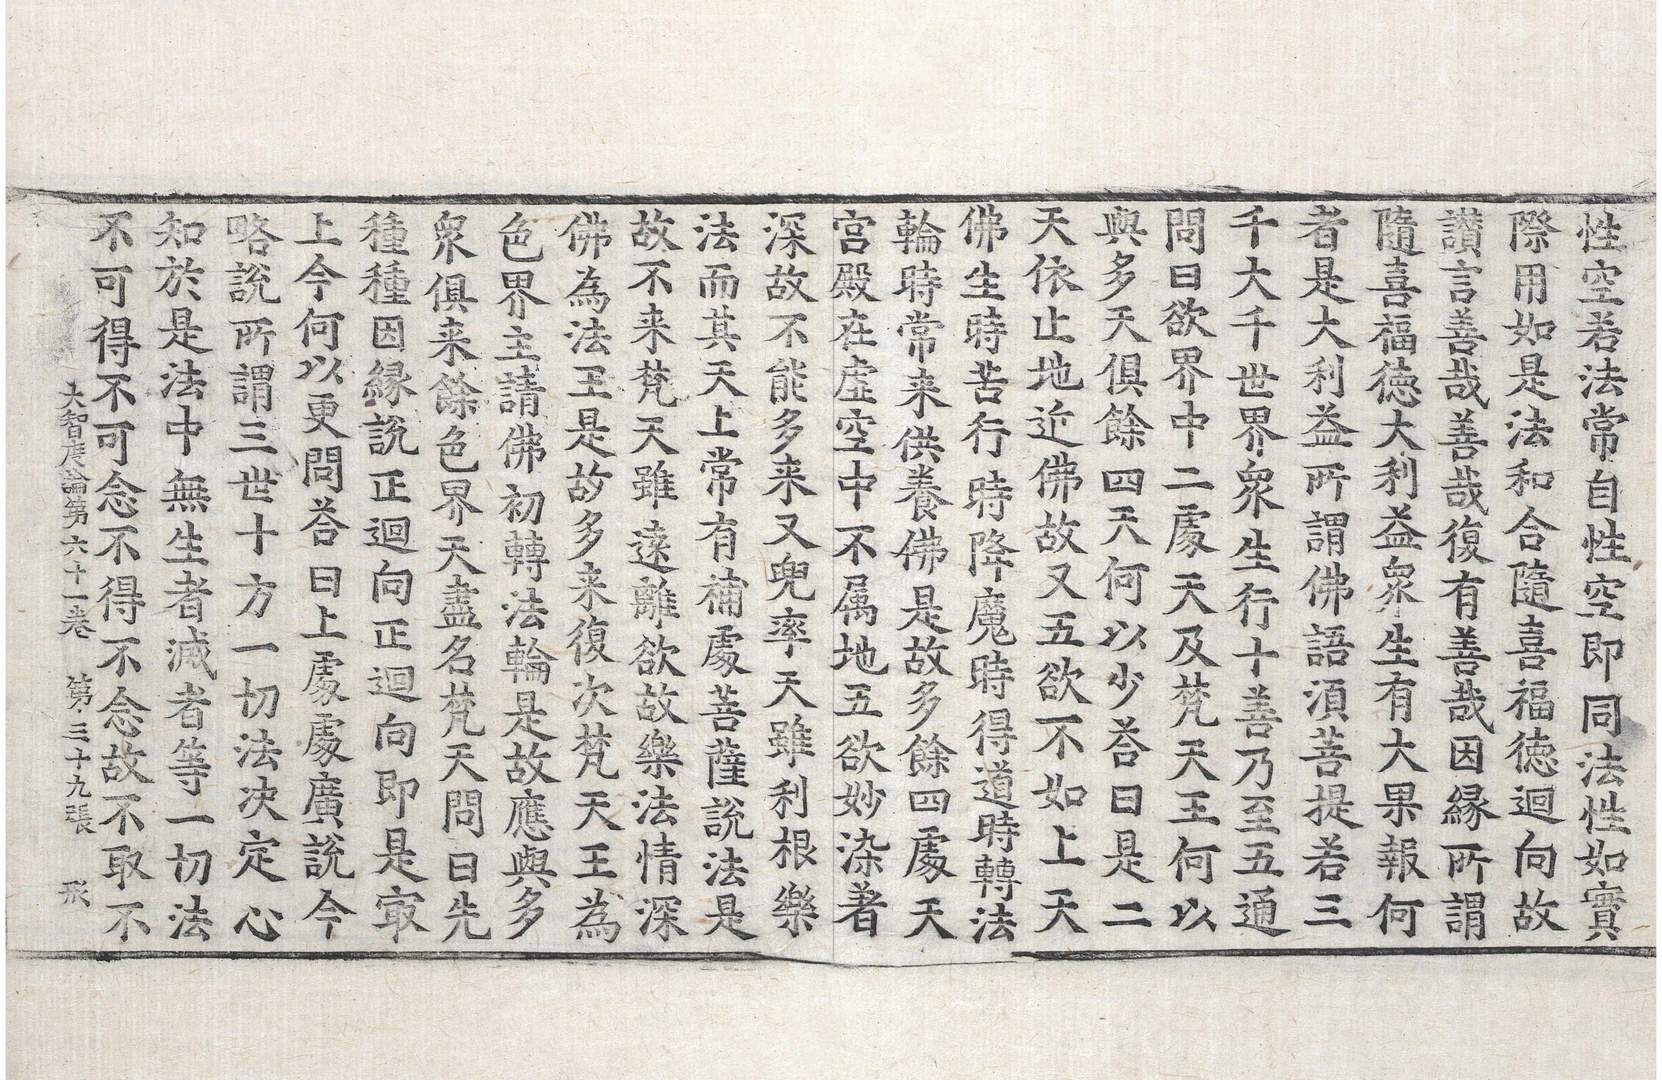 性空若法常自性空即同法性如實
際用如是法和合隨喜福德迴向故
讃言善哉善哉復有善哉因縁所謂
隨喜福德大利益衆生有大果報何
者是大利益所謂佛語須菩提若三
千大千世界衆生行十善乃至五通
問曰欲界中二處天及梵天王何以
與多天俱餘四天何以少荅曰是二
天依止地近佛故又五欲不如上天
佛生時苦行時降魔時得道時轉法
輪時常来供養佛是故多餘四處天
宮殿在虛空中不属地五欲妙染著
深故不能多来又兜率天雖利根樂
法而其天上常有補處菩薩說法是
故不来梵天雖遠離欲故樂法情深
佛為法王是故多来復次梵天王為
色界主請佛初轉法輪是故應與多
衆俱来餘色界天盡名梵天問曰先
種種因縁說正迴向正迴向即是㝡
上今何以更問荅曰上處處廣說今
略說所謂三世十方一切法决定心
知於是法中無生者滅者等一切法
不可得不可念不得不念故不取不
大智度論第六十一卷 第三十九張 形